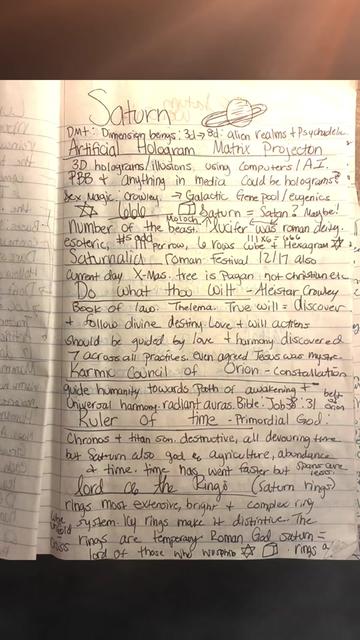 Saturn
DMT: Dimension beings: 3d → 8d: alien realms + Psychadelic
Artificial Hologram Matrix Projecton
3D holograms/illusions using computers/A.I.
PBB + anything in media could be holograms?
Sex Magic. Crowley. → Galactic Gene pool/eugenics
666 Saturn = Satan? Maybe!
Moloch
Number of the beast. Lucifer was roman deity.
esoteric, #s add 111 per row, 6 rows cube = Hexagram
111x6 = 666
Saturnalia roman festival 12/17 also
current day X-Mas. tree is Pagan not christian etc
Do what thou Wilt - Aleister Crowley
Book of law: Thelema. True will = discover
+ follow divine destiny. Love + will actions
should be guided by love + harmony discovered
7 across all practices. Even agreed Jesus was mystic
Karmic Council of Orion - Constallation
guide humanity towards Path of awakening +
belt of orion
Universal harmony. radiant auras. Bible: Job 38:31
Ruler of time - Primordial God:
Chronos + titan son. destructive, all devouring time
but Saturn also god of agriculture, abundance
+ time. time has went faster but
lord of the Rings (saturn rings)
rings most extensive, bright + complex ring
system. Icy rings make it distintive. The
rings are temporary. Roman God saturn =
lord of those who worship rings